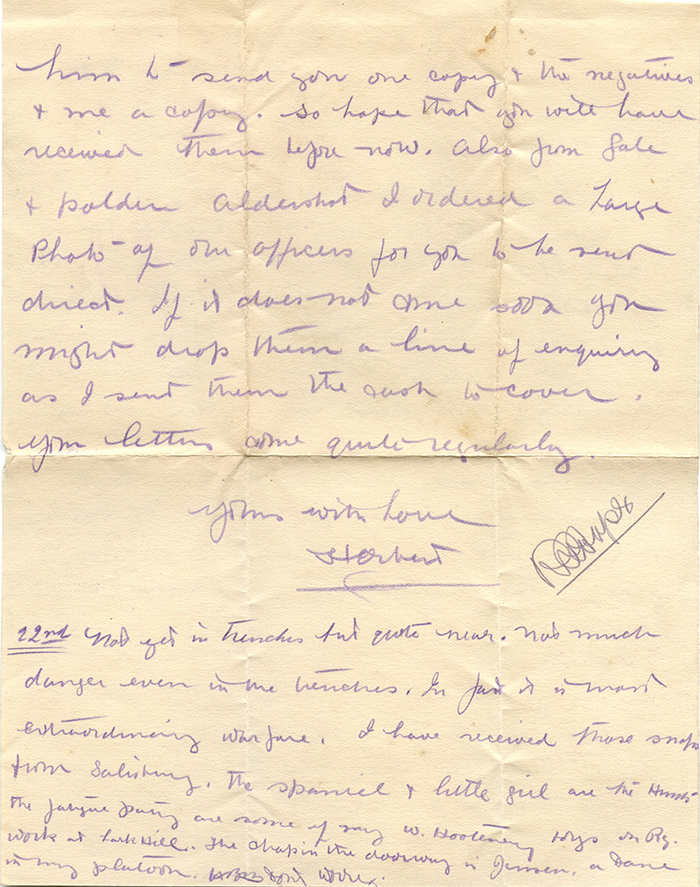 him to send you one copy & the negatives
& me a copy. So hope that you will have
received them before now. Also from Gale
& Polden Aldershot I ordered a Large
Photo of our officers for you to be sent
direct. If it does not come soon you
might drop them a line of enquiry
as I sent them the cash to cover.
Your letters come quite regularly.
Yours with Love
Herbert
22nd Not yet in trenches but quite near. Not much
danger even in the trenches. In fact it is most
extraordinary warfare. I have received those snaps
from Salisbury. The spaniel & little girl are the Hunts
the fatigue party are some of my W. Kootenay boys on
work at Lark Hill. The chap in the doorway is Jensen, a Dane
in my platoon. don't worry.